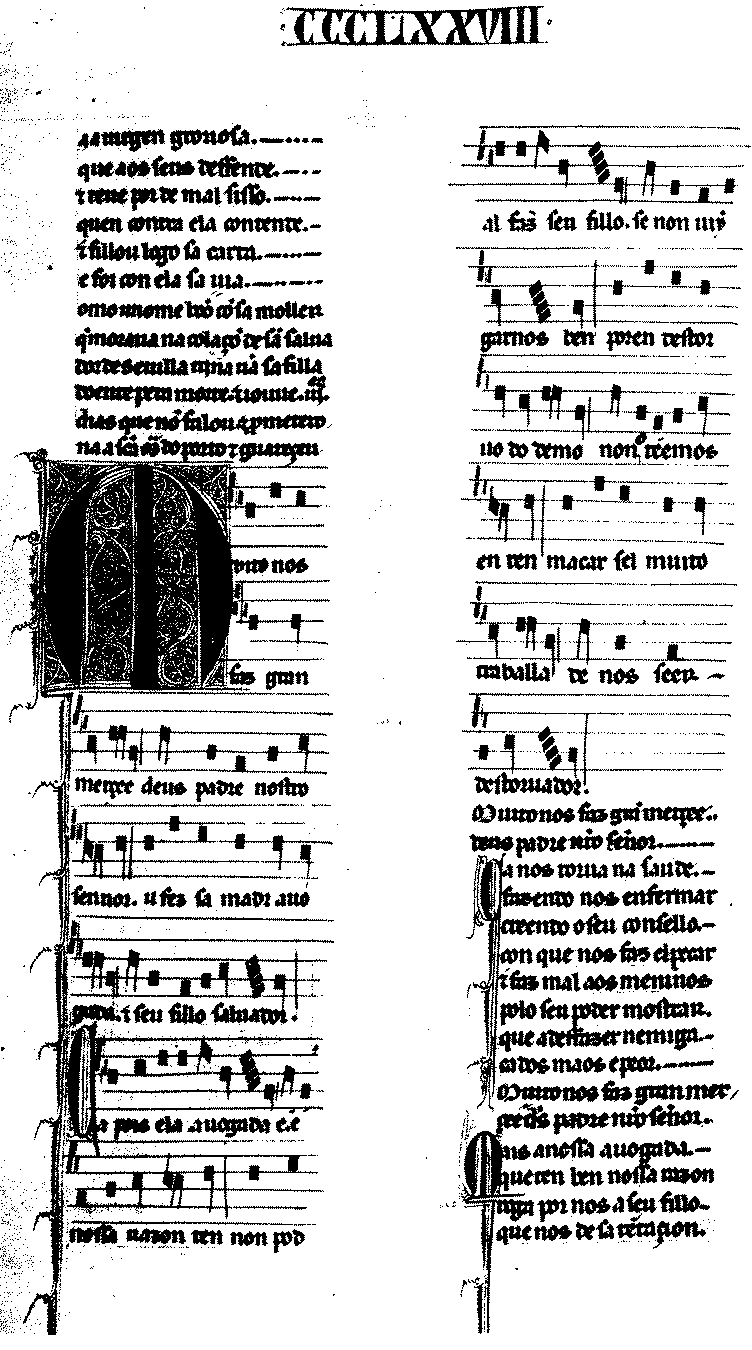 CCCLXXVIII
a uirgen groriosa.
que aos seus deffende.
t tene por de mal sisso.
quen contra ela contende.
t fillou logo sa carta.
e foi con ela sa uia.
como un ome bõo cõ sa moller
q̃ moraua na colaçõ de sã salua
dor de seuilla tiña
doente pera morte.
dias que nõ falou
Muito nos
faz gran
merçee deus padre nostro
sennor. u fez sa madr auo
gada. t seu fillo saluador.
Ca pois ela auogada e. e
nossa razon ten non pod
al faz̃ seu fillo. se non iuỹ
garnos ben poren destor
uo do demo non teemos
en ren macar sel muito
traballa de nos seer
destoruador.
Muito nos faz grã merçee.
deus padre nr̃o señor.
Ca nos torna na saude.
fazendo nos enfermar
creendo o seu consello.
con que nos faz el pecar
t faz mal aos meninos
polo seu poder mostrar.
que a deffazer nemiga.
dos maos
Muito nos faz gran mer
çee ds̃ padre nr̃o señor.
Mais a nossa auogada.
queren ben nossa razon
roga por nos a seu fillo.
que nos de sa